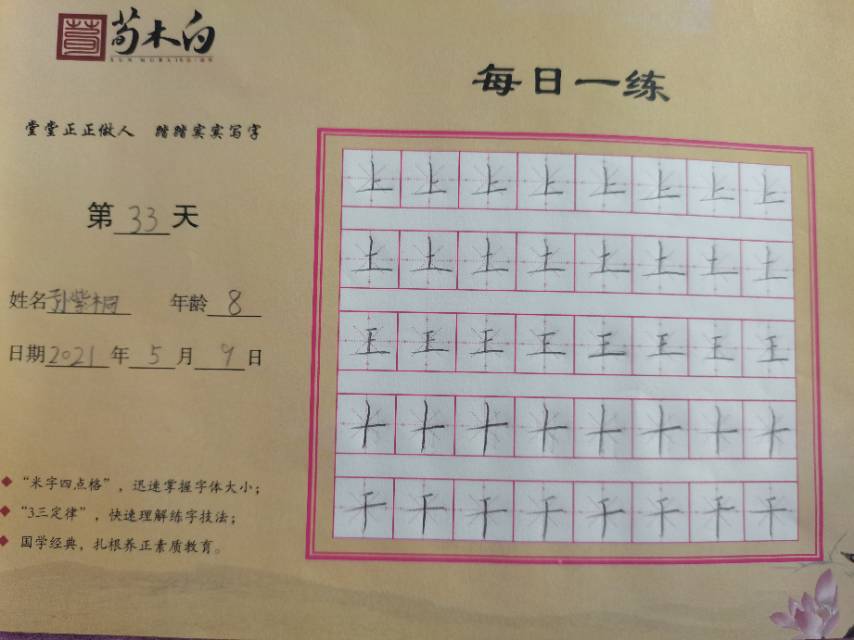 荀木白
每日一练
堂堂正正做人 踏踏实实写字
第33天
姓名孙紫桐 年龄8
日期2021年5月9日
“米字四点格”，迅速掌握字体大小；
“3三定律”，快速理解练字技法；
国学经典，扎根养正素质教育。
上上上上上上上上
土土土土土土土土
王王王王王王王王
十十十十十十十十
干干干干干干干干